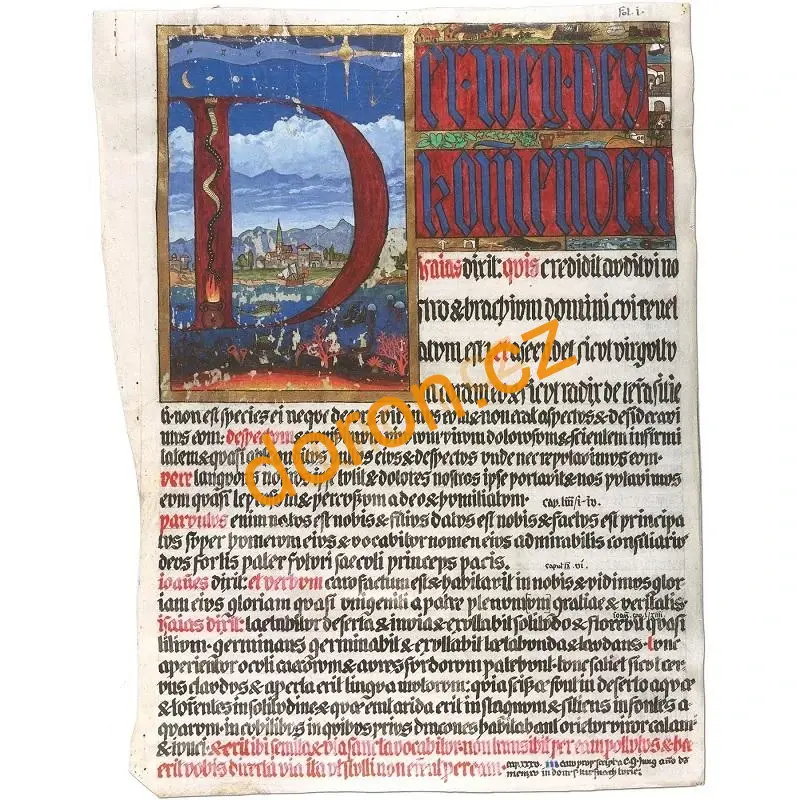 fol. i.
D
er · weg · des
kom̄enden
isaias dixit: qvis credidit avditvi no
stro & brachivm domini cvi revel
atvm est? & ascendet sicvt virgvltv
coram eo & sicvt radix de terra sitie
ti · non est species ei neqve decor: vidimvs evm & non erat aspectvs & desideravi
mvs evm: despectvm & virvm dolorvm & scientem infirmi
tatem & qvasi vvltvs eivs & despectvs vnde nec repvtavimvs evm ·
vere langvores nostros ipse tvlit & dolores nostros ipse portavit & nos pvtavimvs
evm qvasi leprosvm & percvssvm a deo & hvmiliatvm · cap. liii / i-iv.
parvvlvs enim natvs est nobis & filivs datvs est nobis & factvs est principa
tvs svper hvmervm eivs & vocabitvr nomen eivs admirabilis consiliarivs
devs fortis pater fvtvri saecvli princeps pacis. capvt ix. vi.
ioan̄es dixit: et verbvm caro factvm est & habitavit in nobis & vidimvs glor
iam eivs gloriam qvasi vnigeniti a patre plenvm gratiae & veritatis. ioan̄. cap. i / xiiii.
isaias dixit: laetabitvr deserta & invia & exvltabit solitvdo & florebit qvasi
lilivm · germinans germinabit & exvltabit laetabvnda & lavdans · tvnc
aperientvr ocvli caecorvm & avres svrdorvm patebvnt · tvnc saliet sicvt cer
vvs clavdvs & aperta erit lingva mvtorvm: qvia scissae svnt in deserto aqvae
& torrentes in solitvdine & qvae erat arida erit in stagnvm & sitiens in fontes a-
qvarvm · in cvbilibvs in qvibvs privs dracones habitabant orietvr viror calami
& ivnci · & erit ibi semita & via sancta vocabitvr · non transibit per eam pollvtvs & haec
erit vobis directa via ita vt stvlti non errent per eam · cap. xxxv.
doron.cz